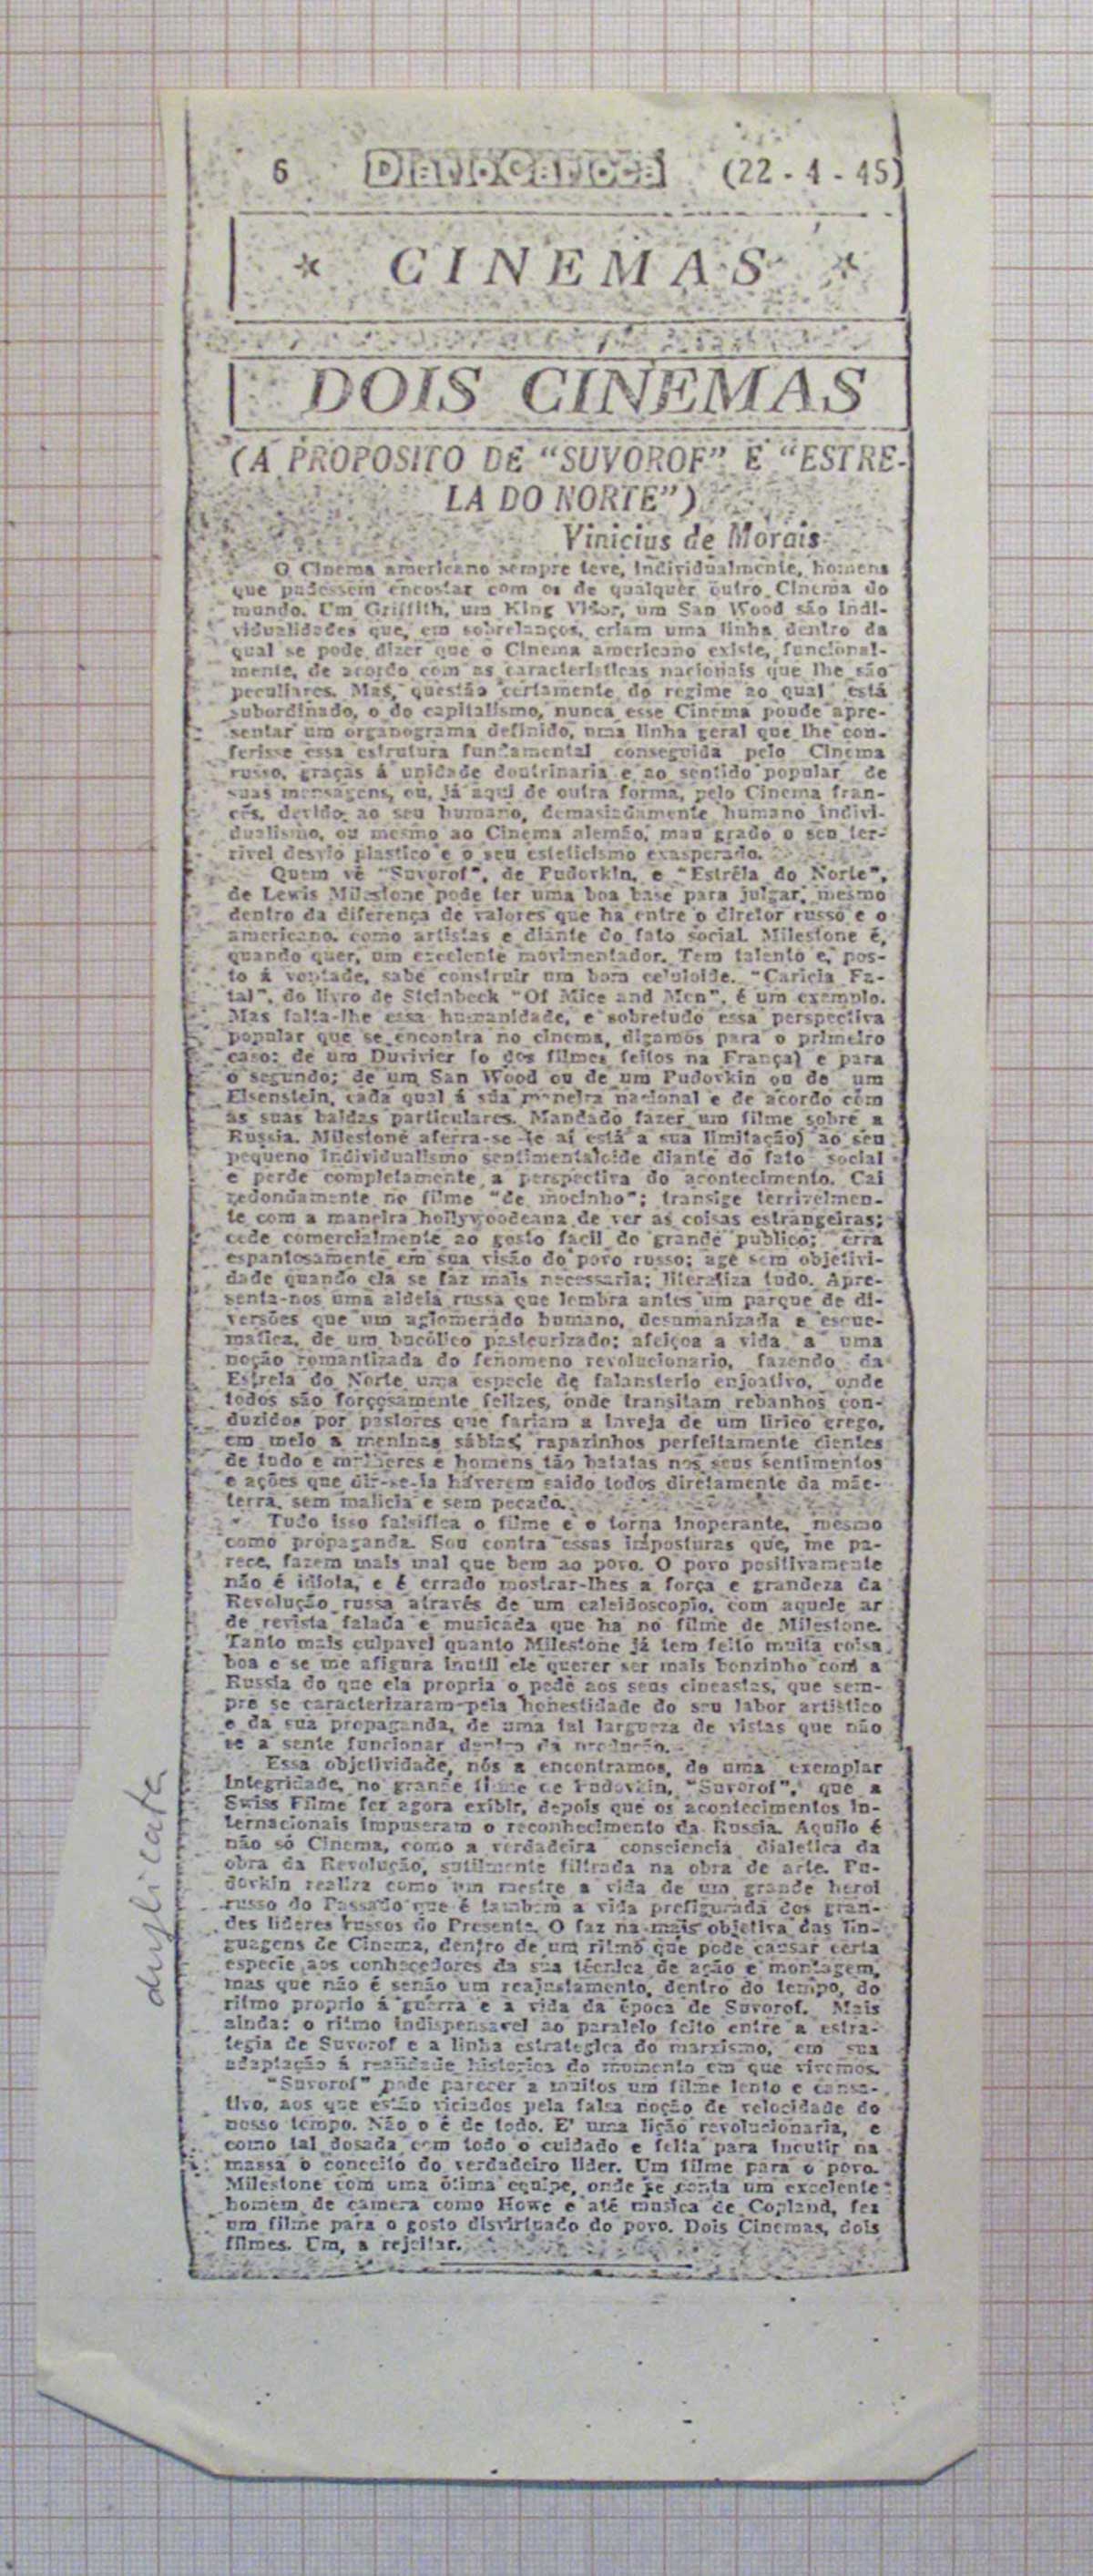 6 Diario Carioca (22-4-45)
* CINEMAS *
DOIS CINEMAS
(A PROPOSITO DE "SUVOROF" E "ESTRE-
LA DO NORTE")
Vinicius de Morais
O Cinema americano sempre teve, individualmente, homens
que pudessem encostar com os de qualquer outro Cinema do
mundo. Um Griffith, um King Vidor, um San Wood são indi-
vidualidades que, em sobrelanços, criam uma linha dentro da
qual se pode dizer que o Cinema americano existe, funcional-
mente, de acordo com as caracteristicas nacionais que lhe são
peculiares. Mas, questão certamente do regime ao qual está
subordinado, o do capitalismo, nunca esse Cinema poude apre-
sentar um organograma definido, uma linha geral que lhe con-
ferisse essa estrutura fundamental conseguida pelo Cinema
russo, graças á unidade doutrinaria e ao sentido popular de
suas mensagens, ou, já aqui de outra forma, pelo Cinema fran-
cês, devido ao seu humano, demasiadamente humano indivi-
dualismo, ou mesmo ao Cinema alemão, mau grado o seu ter-
rivel desvio plastico e o seu esteticismo exasperado.
Quem vê "Suvorof", de Pudovkin, e "Estrêla do Norte",
de Lewis Milestone pode ter uma boa base para julgar, mesmo
dentro da diferença de valores que ha entre o diretor russo e o
americano, como artistas e diante do fato social. Milestone é,
quando quer, um excelente movimentador. Tem talento e, pos-
to á vontade, sabe construir um bom celuloide. "Caricia Fa-
tal", do livro de Steinbeck "Of Mice and Men", é um exemplo.
Mas falta-lhe essa humanidade, e sobretudo essa perspectiva
popular que se encontra no cinema, digamos para o primeiro
caso: de um Duvivier (o dos filmes feitos na França) e para
o segundo; de um San Wood ou de um Pudovkin ou de um
Eisenstein, cada qual á sua maneira nacional e de acordo com
as suas baldas particulares. Mandado fazer um filme sobre a
Russia, Milestone aferra-se (e aí está a sua limitação) ao seu
pequeno individualismo sentimentaloide diante do fato social
e perde completamente a perspectiva do acontecimento. Cai
redondamente no filme "de mocinho"; transige terrivelmen-
te com a maneira hollywoodeana de ver as coisas estrangeiras;
cede comercialmente ao gosto facil do grande publico; erra
espantosamente em sua visão do povo russo; age sem objetivi-
dade quando ela se faz mais necessaria; literatiza tudo. Apre-
senta-nos uma aldeia russa que lembra antes um parque de di-
versões que um aglomerado humano, desumanizada e esque-
matica, de um bucólico pasteurizado; afeiçoa a vida a uma
noção romantizada do fenomeno revolucionario, fazendo da
Estrela do Norte uma especie de falansterio enjoativo, onde
todos são forçosamente felizes, onde transitam rebanhos con-
duzidos por pastores que fariam a inveja de um lirico grego,
em meio a meninas sábias, rapazinhos perfeitamente cientes
de tudo e mulheres e homens tão batatas nos seus sentimentos
e ações que dir-se-ia haverem saido todos diretamente da mãe-
terra, sem malicia e sem pecado.
Tudo isso falsifica o filme e o torna inoperante, mesmo
como propaganda. Sou contra essas imposturas que, me pa-
rece, fazem mais mal que bem ao povo. O povo positivamente
não é idiota, e é errado mostrar-lhes a força e grandeza da
Revolução russa através de um caleidoscopio, com aquele ar
de revista falada e musicada que ha no filme de Milestone.
Tanto mais culpavel quanto Milestone já tem feito muita coisa
boa e se me afigura inutil ele querer ser mais bonzinho com a
Russia do que ela propria o pede aos seus cineastas, que sem-
pre se caracterizaram pela honestidade do seu labor artistico
e da sua propaganda, de uma tal largueza de vistas que não
se a sente funcionar dentro da produção.
Essa objetividade, nós a encontramos, de uma exemplar
integridade, no grande filme de Pudovkin, "Suvorof", que a
Swiss Filme fez agora exibir, depois que os acontecimentos in-
ternacionais impuseram o reconhecimento da Russia. Aquilo é
não só Cinema, como a verdadeira consciencia dialetica da
obra da Revolução, sutilmente filtrada na obra de arte. Pu-
dovkin realiza como um mestre a vida de um grande heroi
russo do Passado que é tambem a vida prefigurada dos gran-
des lideres russos do Presente. O faz na mais objetiva das lin-
guagens de Cinema, dentro de um ritmo que pode causar certa
especie aos conhecedores da sua técnica de ação e montagem,
mas que não é senão um reajustamento, dentro do tempo, do
ritmo proprio á guerra e á vida da época de Suvorof. Mais
ainda: o ritmo indispensavel ao paralelo feito entre a estra-
tegia de Suvorof e a linha estrategica do marxismo, em sua
adaptação á realidade historica do momento em que vivemos.
"Suvorof" pode parecer a muitos um filme lento e cansa-
tivo, aos que estão viciados pela falsa noção de velocidade do
nosso tempo. Não o é de todo. E' uma lição revolucionaria, e
como tal dosada com todo o cuidado e feita para incutir na
massa o conceito do verdadeiro lider. Um filme para o povo.
Milestone com uma ótima equipe, onde se conta um excelente
homem de camera como Howe e até musica de Copland, fez
um filme para o gosto disvirtuado do povo. Dois Cinemas, dois
filmes. Um, a rejeitar.
duplicata